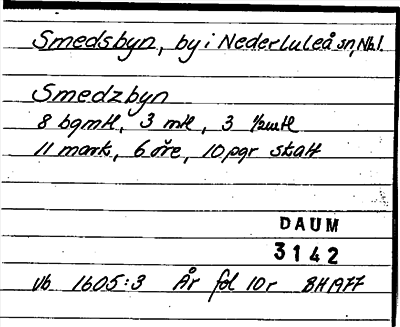 Smedsbyn, by i Nederluleå sn, Nbl.
Smedzbyn
8 bgmtl, 3 mtl, 3 ½mtl
11 mark, 6 öre, 10 pgr skatt
DAUM
3142
Vb 1605:3 År fol 10r BH 1977